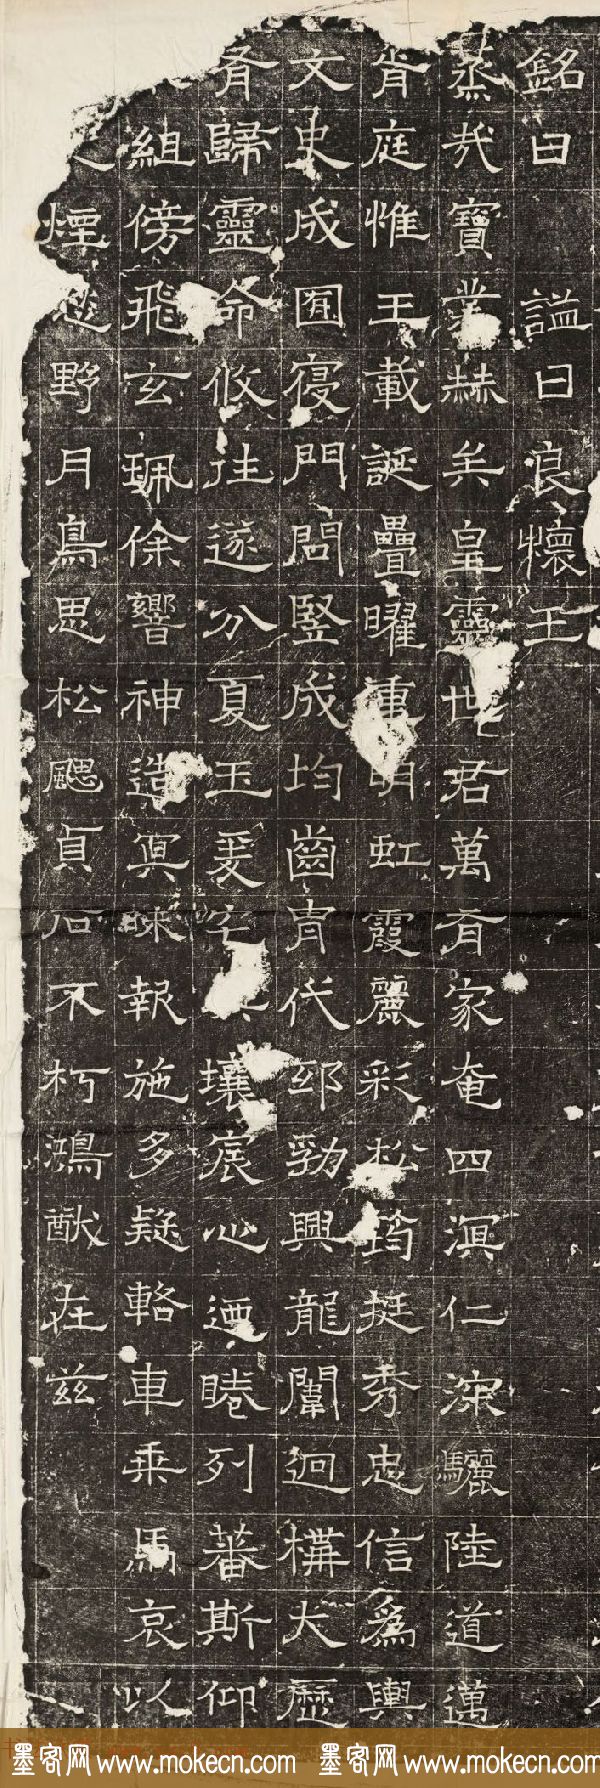 銘曰 謚曰良懷王
蒸哉寶業赫矣皇靈世君萬有家奄四溟仁深驪陸道邁
胥庭惟王載誕疊曜重明虹霞麗彩松筠挺秀忠信爲輿
文史成囿寑門問豎成均齒冑代邸勁興龍闈迥構大歷
有歸靈命攸往遂分夏玉爰宅壤宸心迺睠列蕃斯仰
組傍飛玄珮徐響神造冥昧報施多疑輅車乘馬哀以
煙野月鳥思松颸貞石不朽鴻猷在茲
墨客网 www.mokecn.com 墨客网 www.mokecn.com